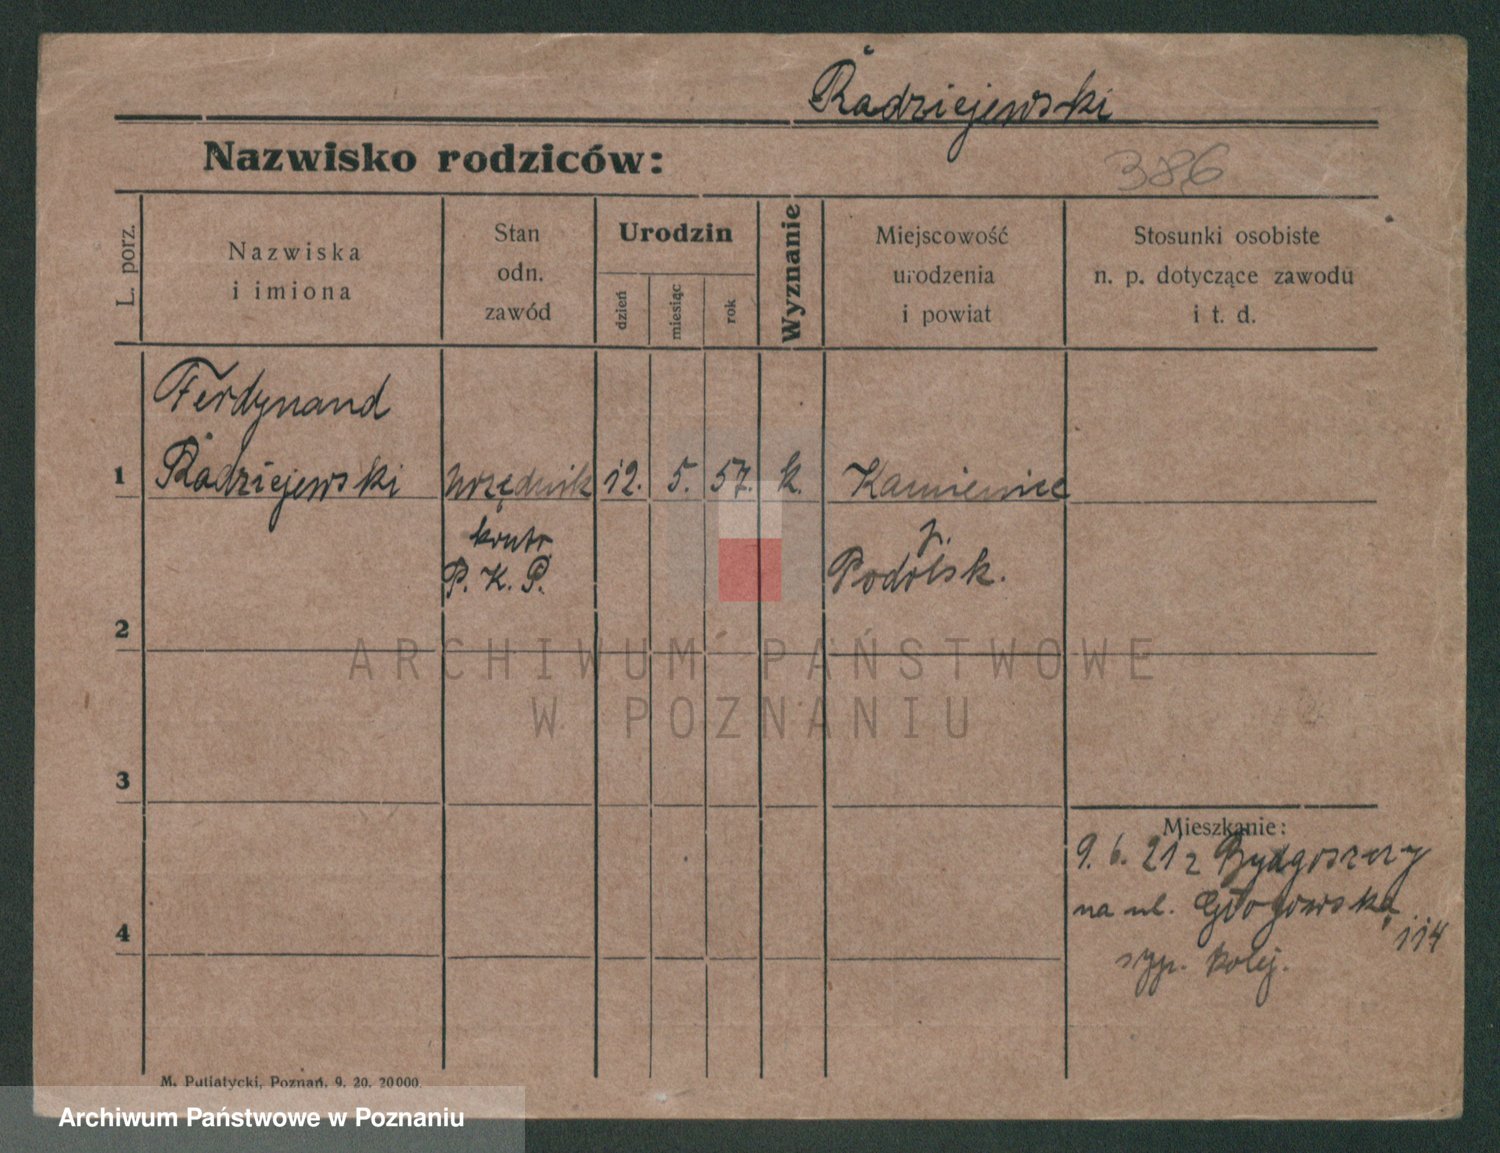 Radziejewski
Nazwisko rodziców:
386
L. porz.
Nazwiska
i imiona
Stan
odn.
zawód
Urodzin
dzień
miesiąc
rok
Wyznanie
Miejscowość
urodzenia
i powiat
Stosunki osobiste
n. p. dotyczące zawodu
i t. d.
Ferdynand
1 Radziejewski urzędnik 12. 5. 57. k. Kamieniec
kontr. p.
P. K. P. Podolsk.
2
ARCHIWUM PAŃSTWOWE
W POZNANIU
3
Mieszkanie:
9. 6. 21 z Bydgoszczy
na ul. Głogowska
114
4
kolej.
M. Putiatycki, Poznań, 9. 20. 20000.
Archiwum Państwowe w Poznaniu